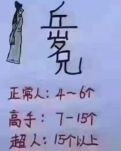 正常人：4～6个
高手：7－15个
超人：15个以上